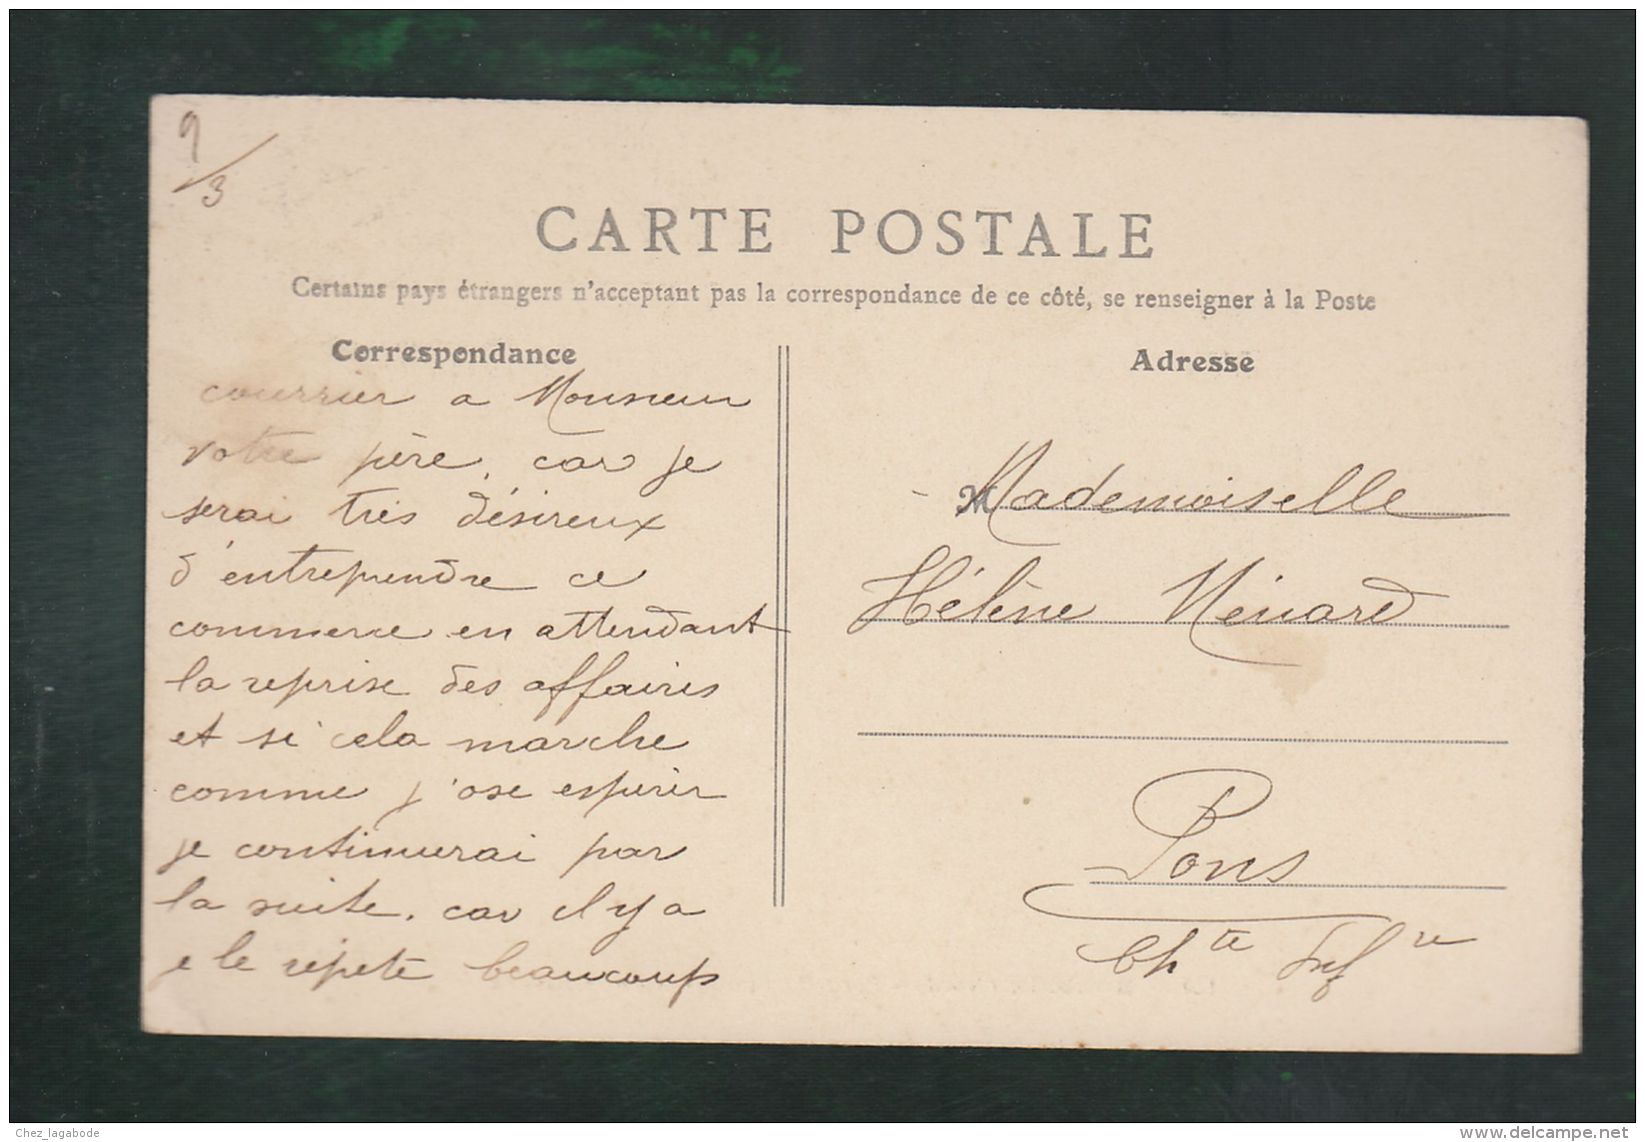 9/3
CARTE POSTALE
Certains pays étrangers n'acceptant pas la correspondance de ce côté, se renseigner à la Poste
Correspondance
courrier a Monsieur
votre père, car je
serai très désireux
d'entreprendre ce
commerce en attendant
la reprise des affaires
et si cela marche
comme j'ose espérer
je continuerai par
la suite. car il y a
je le répète beaucoup
Adresse
M Mademoiselle
Hélène Ménard
Pons
Ch^te Inf^re
Chez_lagabode
delcampe.net